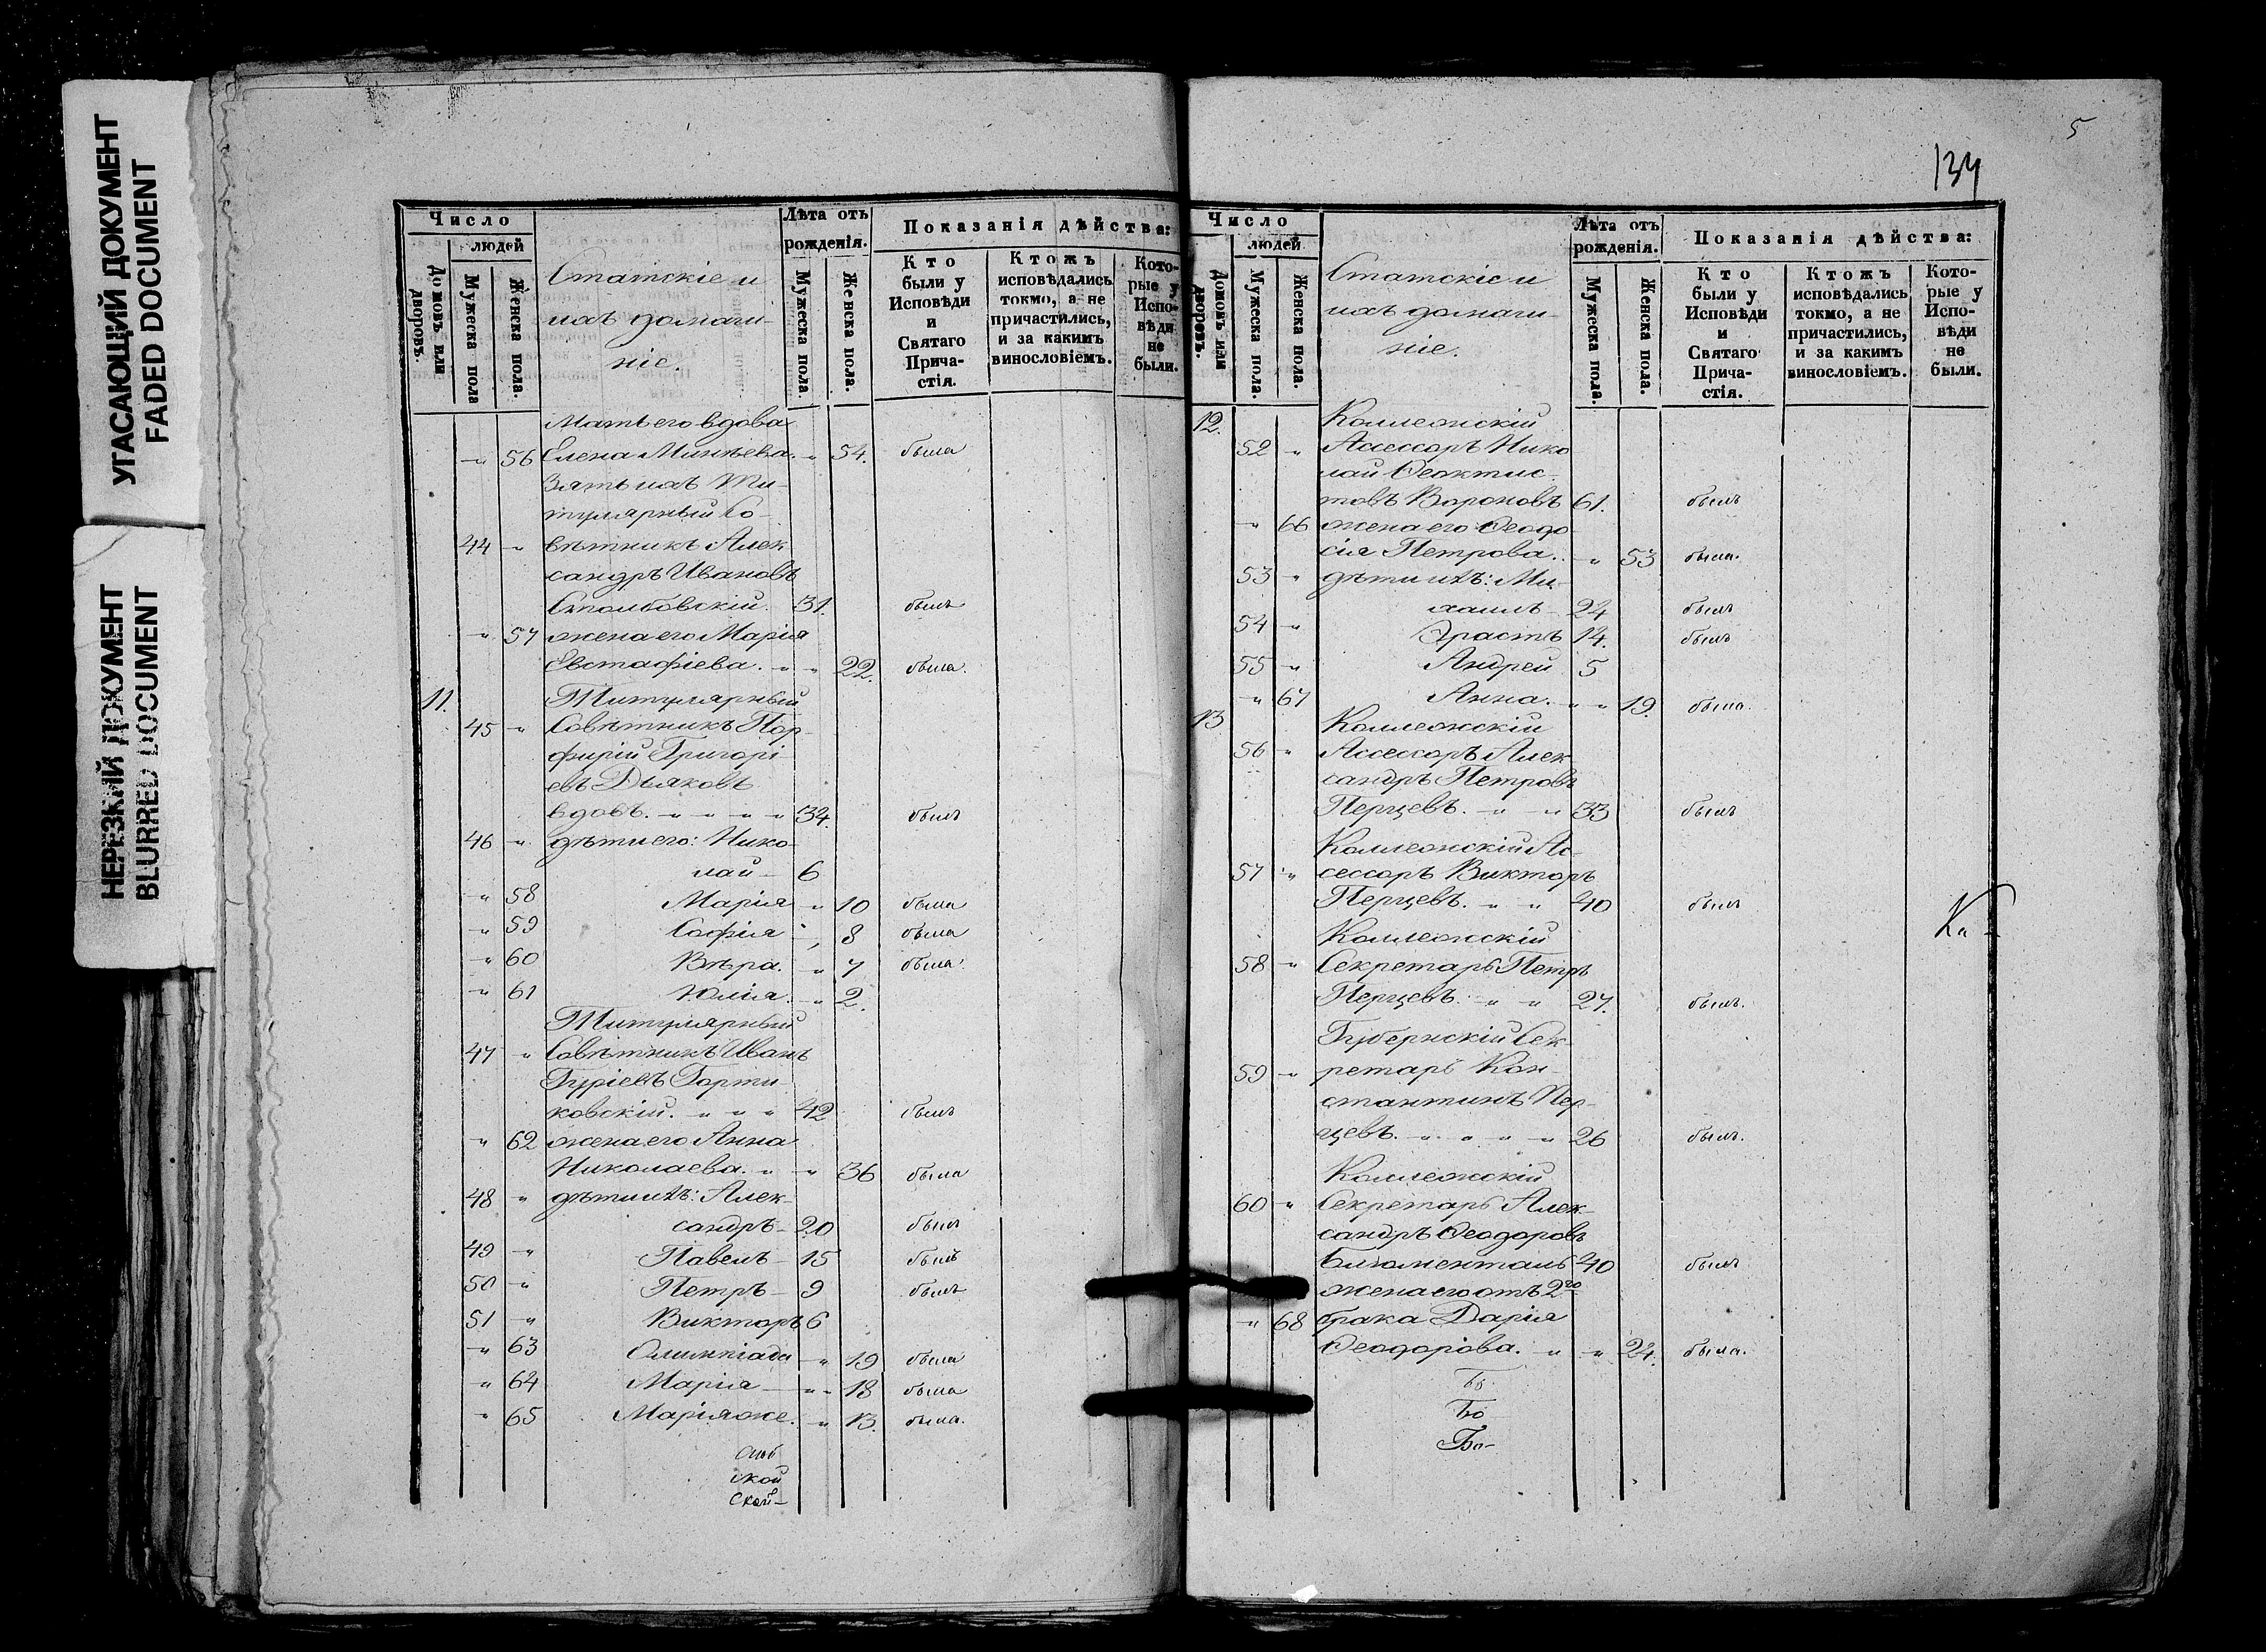 УГАСАЮЩИЙ ДОКУМЕНТ
FADED DOCUMENT
НЕРЕЗКИЙ ДОКУМЕНТ
BLURRED DOCUMENT
Число
людей
Домовъ или дворовъ.
Мужеска пола
Женска пола.
Статскіе и
ихъ домаш-
ніе.
Лѣта отъ
рожденія.
Мужеска пола.
Женска пола.
Показанія дѣйства:
Кто были у Исповѣди и Святаго Прича-стія.
Ктожъ исповѣдались токмо, а не причастились, и за какимъ винословіемъ.
Кото-рые у Испо-вѣди не были.
Мать его вдова
" 56 Елена Минѣева. " 54. была
Зять ихъ Ти-
тулярный Со-
44 " вѣтникъ Алек
сандръ Ивановъ
Столбовскій. 31. былъ
" 57 жена его Марія
Евстафіева. " " 22. была.
11. Титулярный
45 " Совѣтникъ Пор-
фирій Григорі-
евъ Дьяковъ
вдовъ. " " " " 34. былъ
46 " дѣти его: Нико-
лай 6
" 58 Марія " 10 была
" 59 Софія " 8 была
" 60 Вѣра. " 7 была.
" 61 Юлія. " 2.
Титулярный
47 " Совѣтникъ Иванъ
Гуріевъ Горти-
ковскій. " " " 42 былъ
" 62 жена его Анна
Николаева. " " 36 была
48 " дѣти ихъ: Алек-
сандръ 20 былъ
49 " Павелъ 15 былъ
50 " Петръ 9 былъ
51 " Викторъ 6
" 63 Олимпіада " 19 была
" 64 Марія " 18 была
" 65 Марія же. " 13. была.
ской
Ской-
5
134
Число
людей
Домовъ или дворовъ.
Мужеска пола.
Женска пола.
Статскіе и
ихъ домаш-
ніе.
Лѣта отъ
рожденія.
Мужеска пола.
Женска пола.
Показанія дѣйства:
Кто были у Исповѣди и Святаго Прича-стія.
Ктожъ исповѣдались токмо, а не причастились, и за какимъ винословіемъ.
Кото-рые у Испо-вѣди не были.
12. Коллежскій
52 " Ассессоръ Нико
лай Феоктис-
товъ Вороновъ 61. былъ
" 66 жена его Феодо
сія Петрова. " 53 была.
53 " дѣти ихъ: Ми-
хаилъ 24 былъ
54 " Эрастъ 14. былъ
55 " Андрей 5
" 67 Анна. " " 19. была.
13 Коллежскій
56 " Ассессоръ Алек
сандръ Петровъ
Перцевъ. " " 33 былъ
Коллежскій Ас-
57 " сессоръ Викторъ
Перцевъ. " " 40 былъ
Коллежскій
58 " Секретарь Петръ
Перцевъ. " " 27. былъ.
Губернскій Сек-
59 " ретарь Кон-
стантинъ Пер-
цевъ. " " " " 26 былъ.
Коллежскій
60 " Секретарь Алек-
сандръ Феодоровъ
Блюменталь 40 былъ
жена его отъ 2го
" 68 брака Дарія
Феодорова. " " 24. была.
Бо
Бо-